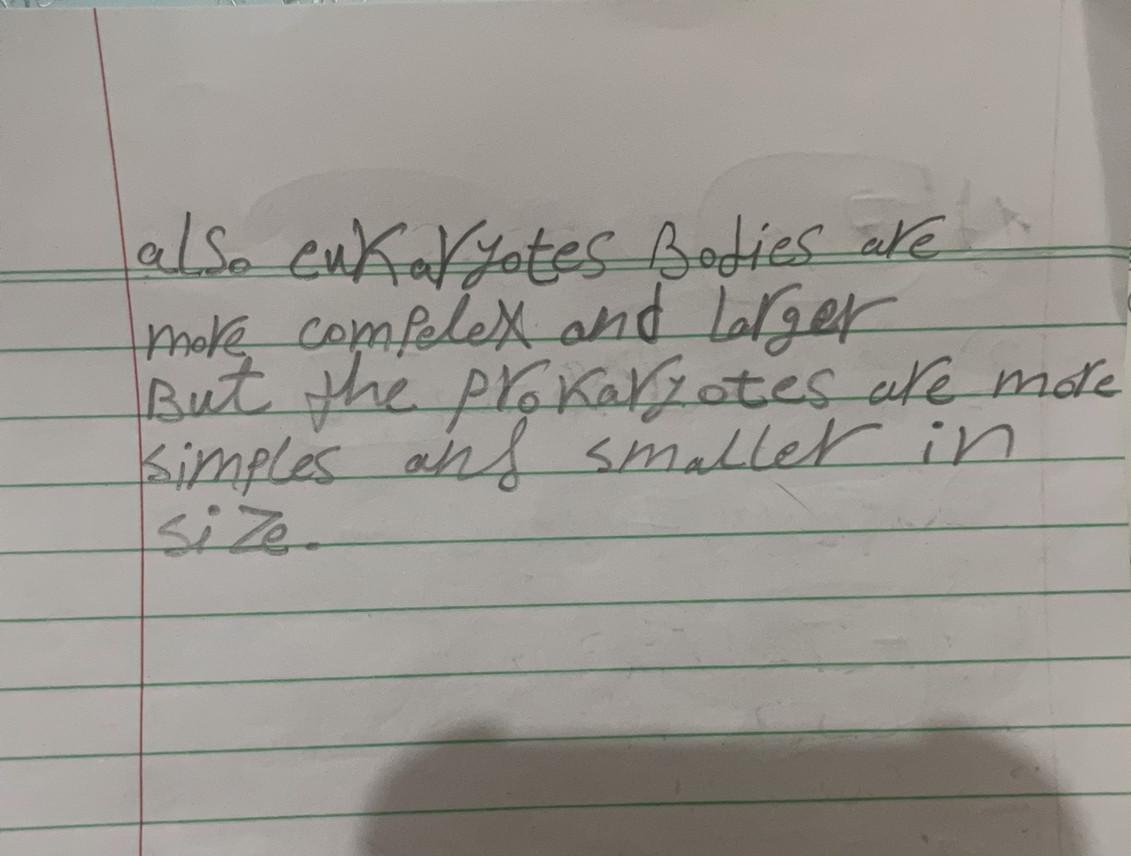 also eukaryotes Bodies are
more compelex and larger
But the prokaryotes are more
simples and smaller in
size.